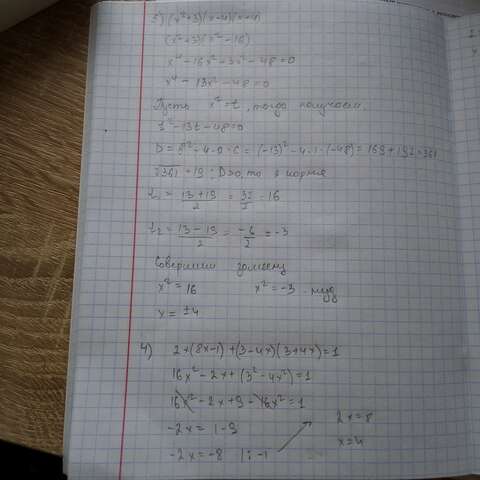 3) (x²+3)(x-4)(x+4)
(x²+3)(x²-16)
x⁴-16x²+3x²-48=0
x⁴-13x²-48=0
Пусть x²=t, тогда получаем,
t²-13t-48=0
D=B²-4·a·c=(-13)²-4·1·(-48)=169+192=361
√361=19; D>0, то 2 корня
t₁=(13+19)/2=32/2=16
t₂=(13-19)/2=-6/2=-3
Совершим замену
x²=16 x²=-3
x=±4
4) 2x(8x-1)+(3-4x)(3+4x)=1
16x²-2x+(3²-4x²)=1
16x²-2x+9-16x²=1
-2x=1-9
-2x=-8 |:-1
2x=8
x=4